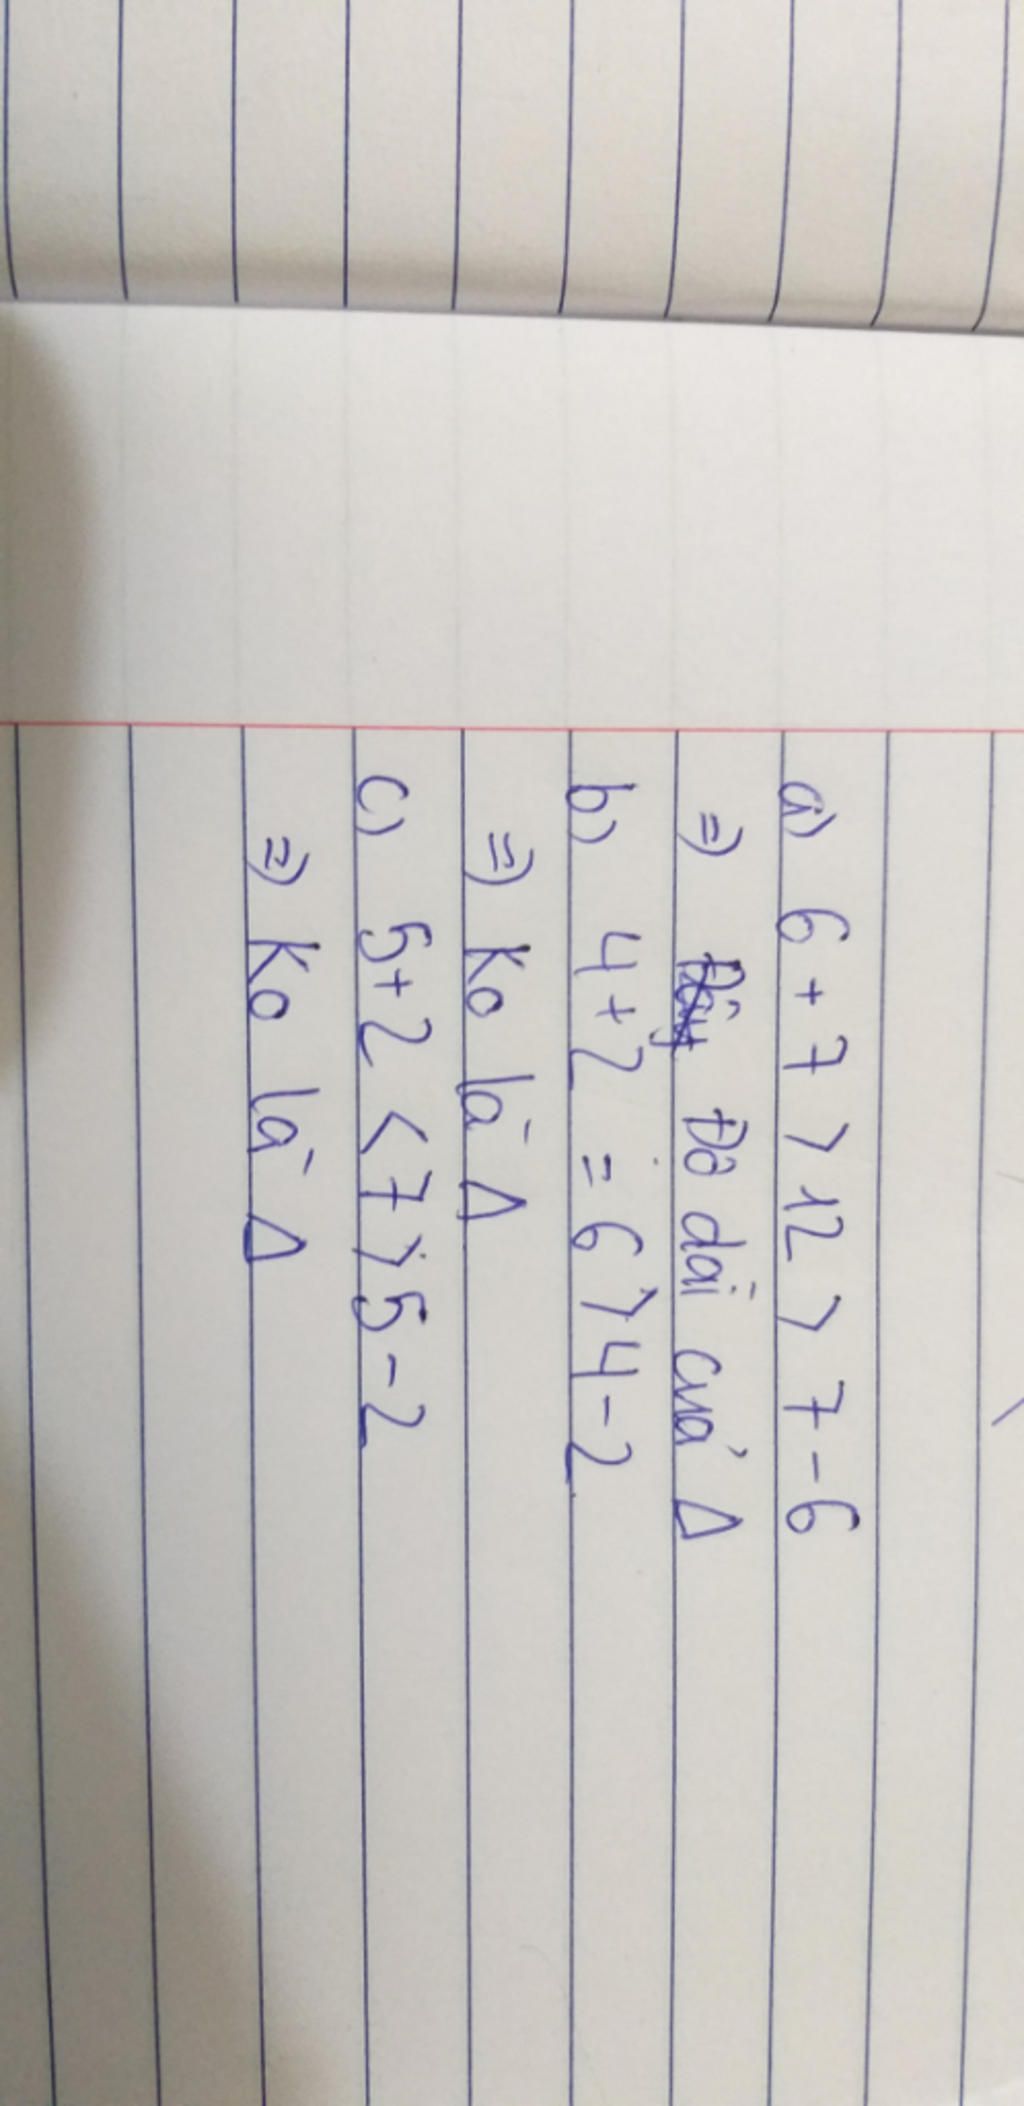 a) 6 + 7 > 12 > 7 - 6
=) Đây Độ dài của Δ
b) 4 + 2 = 6 > 4 - 2
=) Ko là Δ
c) 5 + 2 < 7 > 5 - 2
=) Ko là Δ